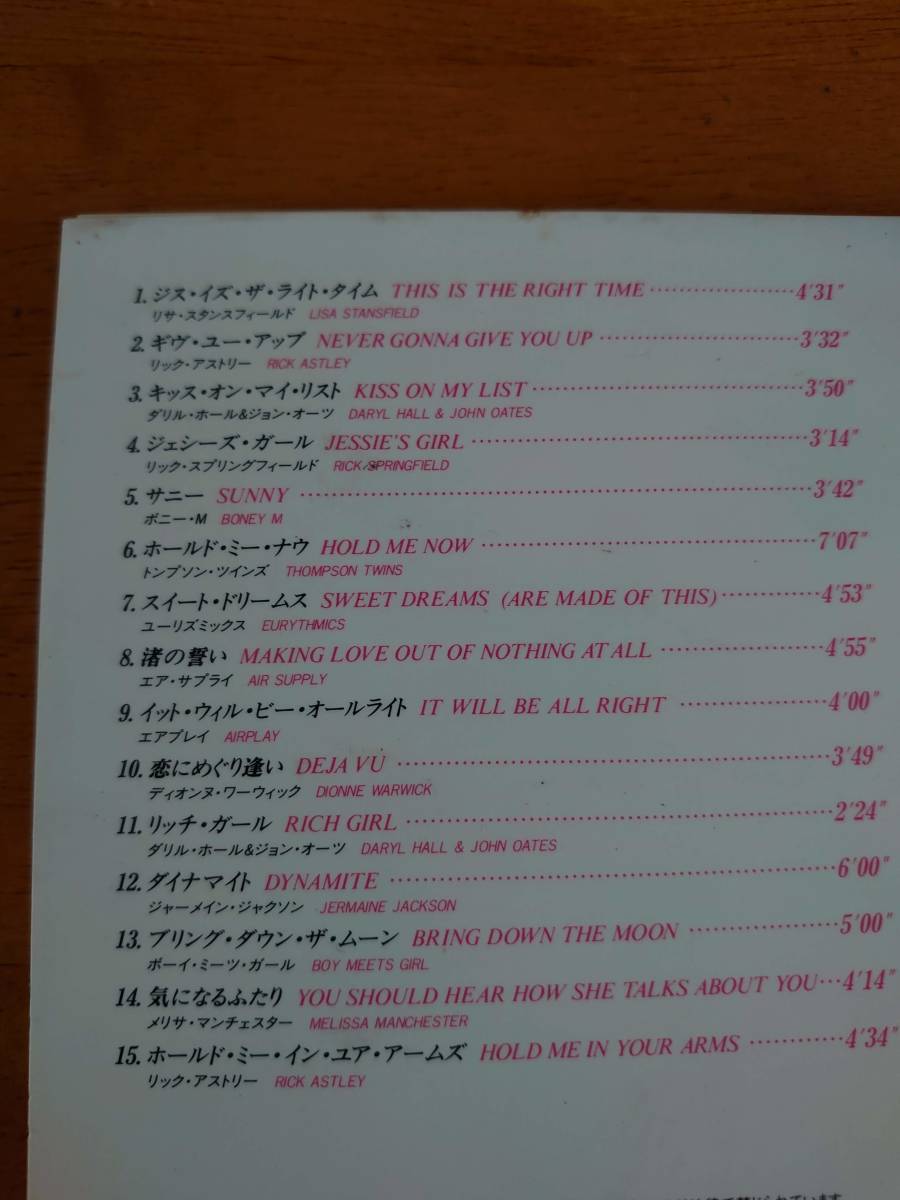 1. ジス・イズ・ザ・ライト・タイム THIS IS THE RIGHT TIME ・・・・・・・・・・・・・・・・・・・・ 4'31"
リサ・スタンスフィールド LISA STANSFIELD
2. ギヴ・ユー・アップ NEVER GONNA GIVE YOU UP ・・・・・・・・・・・・・・・・・・・・ 3'32"
リック・アストリー RICK ASTLEY
3. キッス・オン・マイ・リスト KISS ON MY LIST ・・・・・・・・・・・・・・・・・・・・ 3'50"
ダリル・ホール&ジョン・オーツ DARYL HALL & JOHN OATES
4. ジェシーズ・ガール JESSIE'S GIRL ・・・・・・・・・・・・・・・・・・・・ 3'14"
リック・スプリングフィールド RICK SPRINGFIELD
5. サニー SUNNY ・・・・・・・・・・・・・・・・・・・・ 3'42"
ボニー・M BONEY M
6. ホールド・ミー・ナウ HOLD ME NOW ・・・・・・・・・・・・・・・・・・・・ 7'07"
トンプソン・ツインズ THOMPSON TWINS
7. スイート・ドリームス SWEET DREAMS (ARE MADE OF THIS) ・・・・・・・・・・・・ 4'53"
ユーリズミックス EURYTHMICS
8. 渚の誓い MAKING LOVE OUT OF NOTHING AT ALL ・・・・・・・・・・・・・・・・・・・・ 4'55"
エア・サプライ AIR SUPPLY
9. イット・ウィル・ビー・オールライト IT WILL BE ALL RIGHT ・・・・・・・・・・・・・・・・・・ 4'00"
エアプレイ AIRPLAY
10. 恋にめぐり逢い DEJA VU ・・・・・・・・・・・・・・・・・・・・ 3'49"
ディオンヌ・ワーウィック DIONNE WARWICK
11. リッチ・ガール RICH GIRL ・・・・・・・・・・・・・・・・・・・・ 2'24"
ダリル・ホール&ジョン・オーツ DARYL HALL & JOHN OATES
12. ダイナマイト DYNAMITE ・・・・・・・・・・・・・・・・・・・・ 6'00"
ジャーメイン・ジャクソン JERMAINE JACKSON
13. ブリング・ダウン・ザ・ムーン BRING DOWN THE MOON ・・・・・・・・・・・・・・・・・・ 5'00"
ボーイ・ミーツ・ガール BOY MEETS GIRL
14. 気になるふたり YOU SHOULD HEAR HOW SHE TALKS ABOUT YOU ・・・ 4'14"
メリサ・マンチェスター MELISSA MANCHESTER
15. ホールド・ミー・イン・ユア・アームズ HOLD ME IN YOUR ARMS ・・・・・・・・・・・・ 4'34"
リック・アストリー RICK ASTLEY